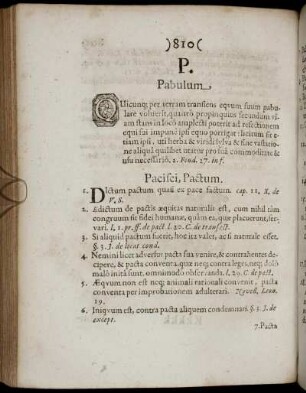 )810(
P.
Pabulum.
QUicunq; per terram transiens eqvum suum pabu-
lare voluerit, quantò propinquius secundum vi-
am stans in loco amplecti poterit ad refectionem
equi sui impunè ipsi equo porrigat: sic tamen ut e-
tiam ipsi, uti herba & viridi sylva & sine vastatio-
ne aliquâ quilibet utatur pro suâ commoditate &
usu necessario. 2. Feud. 27. in f.
Pacisci, Pactum.
1. DIctum pactum quasi eu pace factum. cap. 11. X. de
V. S.
2. Edictum de pactis æquitas naturalis est, cum nihil tàm
congruum sit fidei humanæ, quàm ea, quæ placuerunt, ser-
vari. l. 1. pr. ff. de pact. l. 20. C. de transact.
3. Si aliquid pactum fuerit, hoc ita valet, ac si naturale esset.
§. 3. J. de locat. cond.
4. Nemini licet adversus pacta sua venire, & contrahentes de-
cipere, & pacta conventa, quæ neq; contra leges, neq; dolo
malo inita sunt, omnimodò observanda. l. 29. C. de pact.
5. Æqvum non est neq; animali rationali convenit, pacta
conventa per improbationem adulterari. Novell. Leon.
19.
6. Iniqvum est, contra pacta aliquem condemnari. §. 3. J. de
except.
7. Pacta